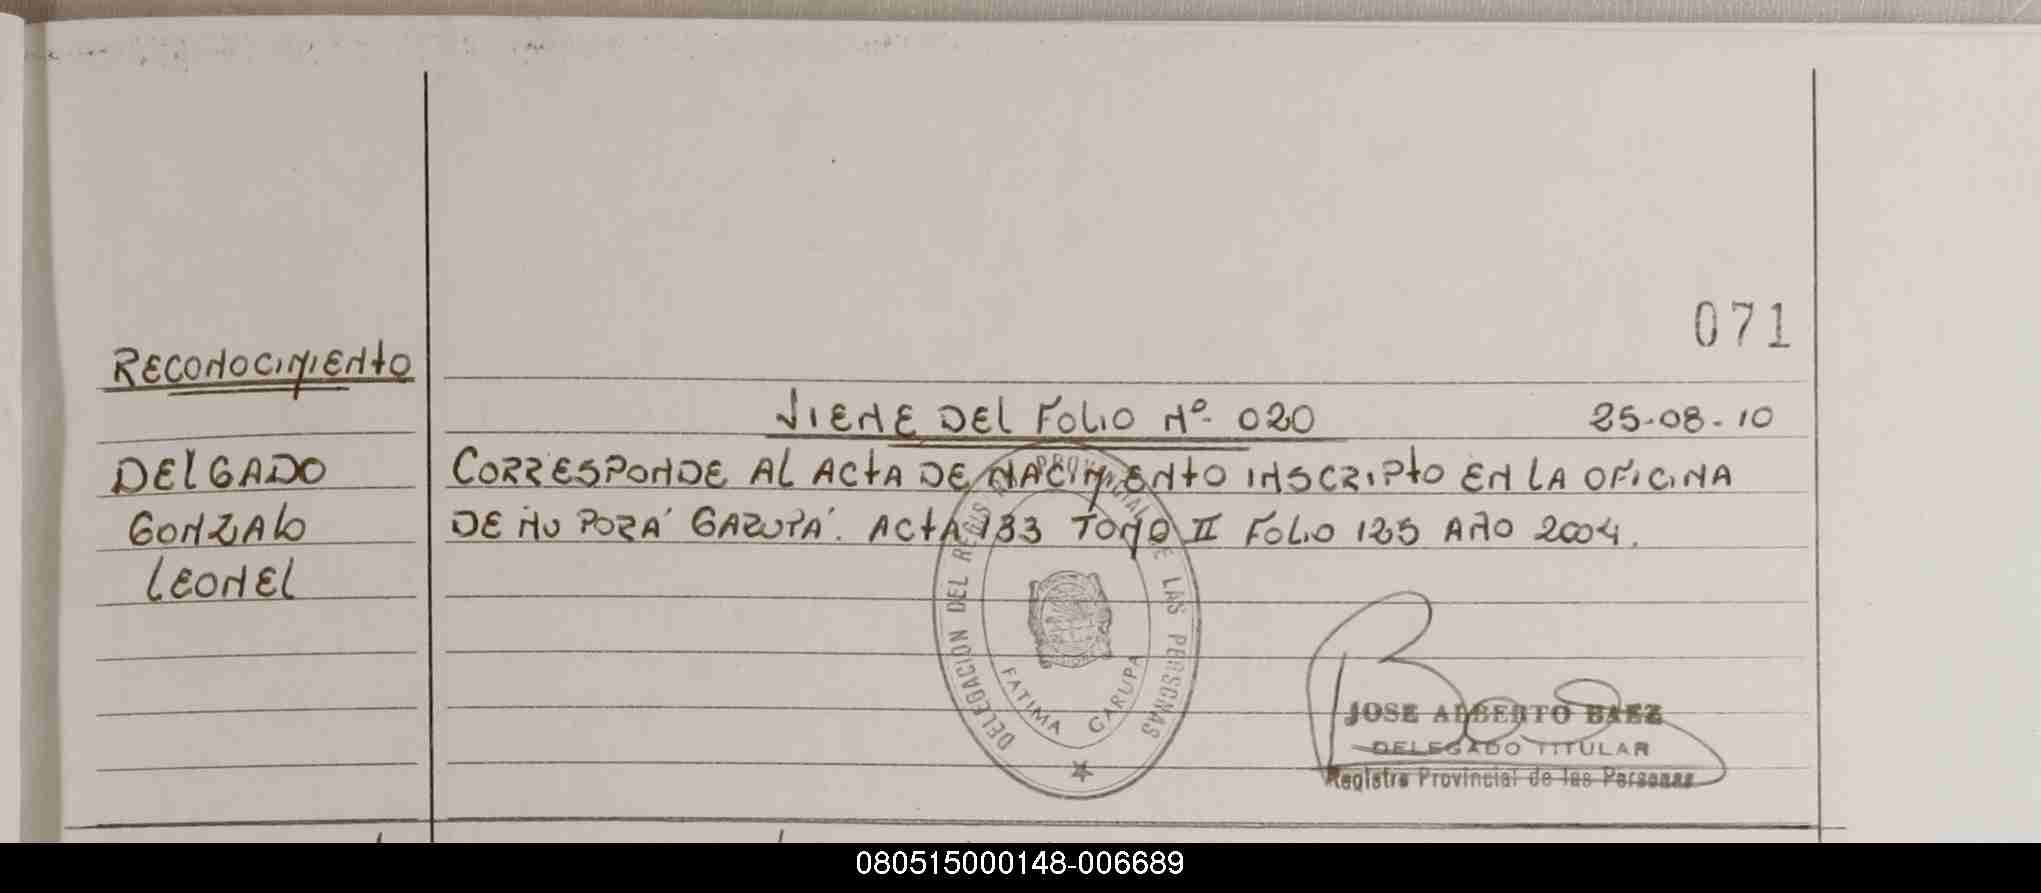 071
RECONOCIMIENTO
VIENE DEL FOLIO Nº- 020 25-08-10
DELGADO
GONZALO
LEONEL
CORRESPONDE AL ACTA DE NACIMIENTO INSCRIPTO EN LA OFICINA
DE ÑU PORÁ GARUPÁ. ACTA 133 TOMO II FOLIO 125 AÑO 2004.
DELEGACION DEL REGISTRO PROVINCIAL DE LAS PERSONAS
FATIMA GARUPA
JOSE ALBERTO BAEZ
DELEGADO TITULAR
Registro Provincial de las Personas
080515000148-006689